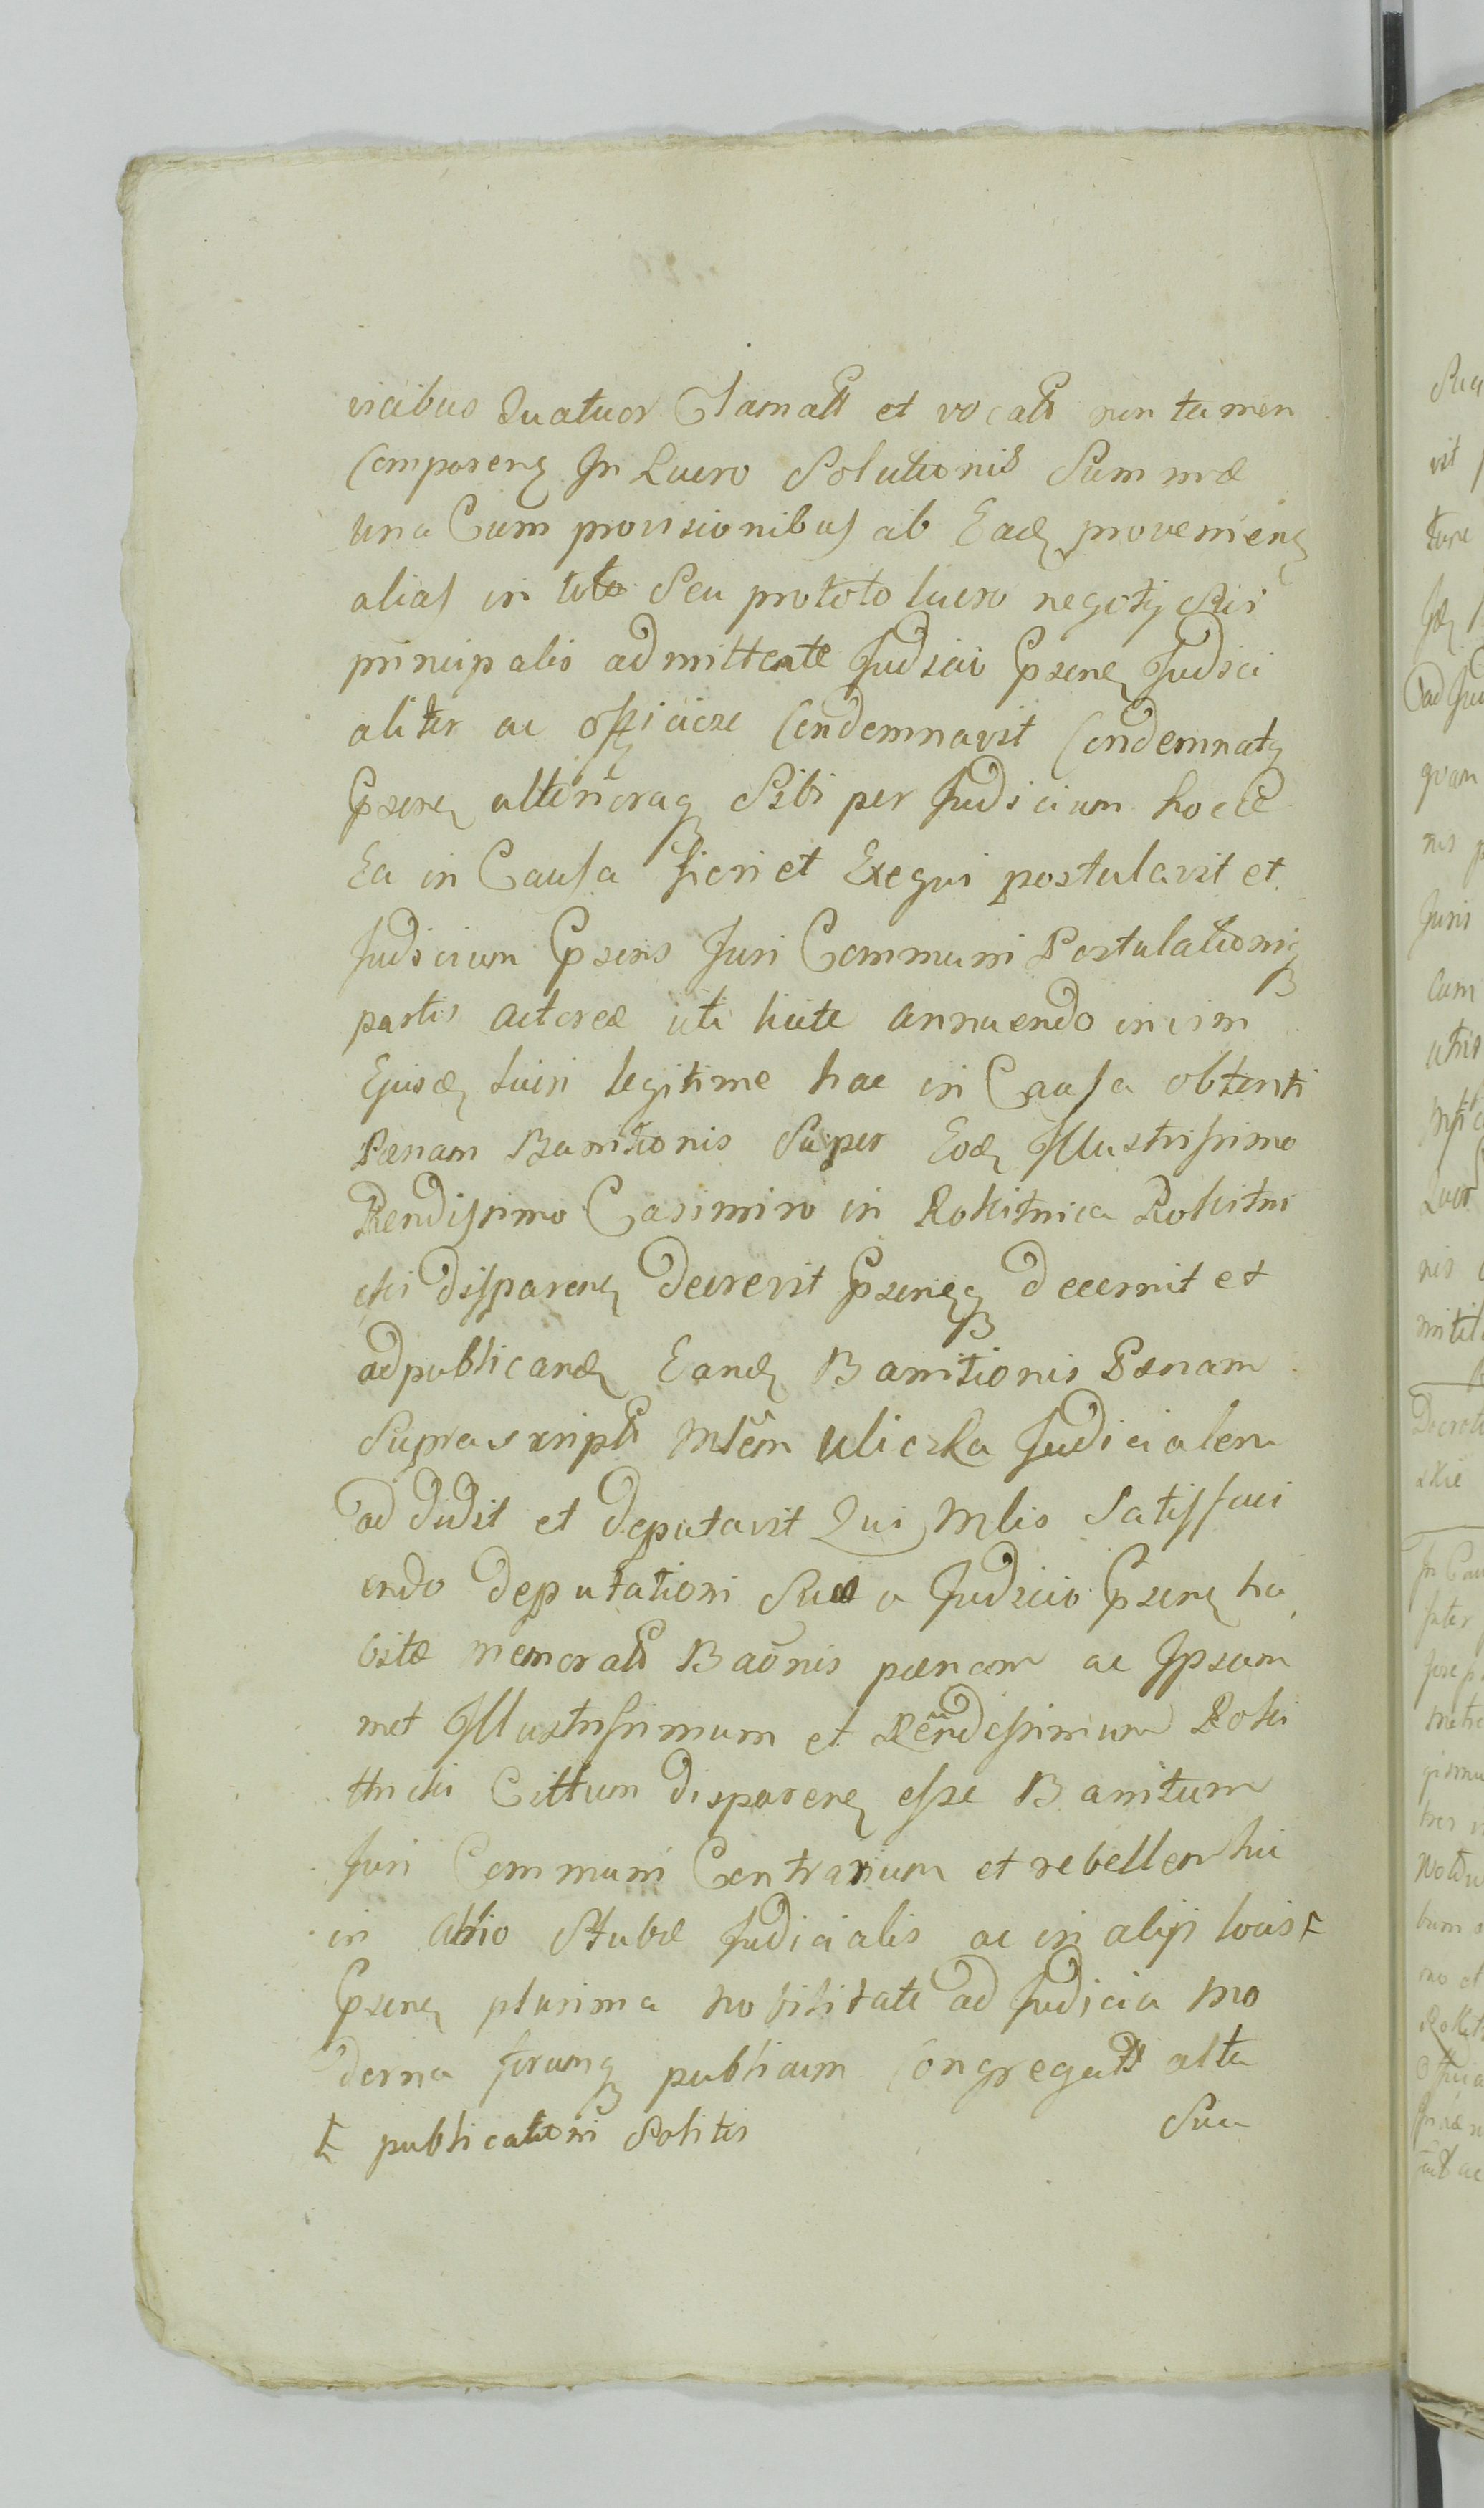 vicibus Quatuor Clamatt et vocatt non tamen
Comparenꝫ In Lucro Solutionis Summæ
una Cum provisionibus ab Eadꝫ provenienꝫ
alias in toto Seu pro toto lucro negotij Sui
principalis admittente Judicio Prꝫsenꝫ Judici
aliter ac officiose Condemnavit Condemnatꝫ
Prꝫsenꝫ ulterioraqꝫ Sibi per Judicium hocce
Ea in Causa fieri et Exequi postulavit et
Judicium Prꝫsens Juri Communi Postulationiqꝫ
partis actoreæ uti licite annuendo in vim
Ejusdꝫ Lucri legitime hac in Causa obtenti
Pœnam Banitionis Super Eodꝫ Illustrissimo
Rendissimo Casimiro in Rokitnica Rokitni
cki disparenꝫ decrevit Prꝫsenꝫqꝫ decernit et
ad publicandꝫ Eandꝫ Banitionis Pœnam
Suprascriptt Mlem Uliczka Judicialem
addidit et deputavit Qui Mlis Satisfaci
endo deputationi Suæ a Judicio Prꝫsenꝫ ha
bitæ memoratt Baōnis pœnam ac Ipsum
met Illustrissimum et Rēndissimum Roki
tnicki Cittum disparenꝫ esse Banitum
Juri Communi Contrarium et rebellem hic
in atrio Stubæ Judicialis ac in alijs locis Ł
Prꝫsenꝫ plurima nobilitate ad Judicia mo
derna forumqꝫ publicum Congregatt alta
Ł publicationi Solitis
Sua